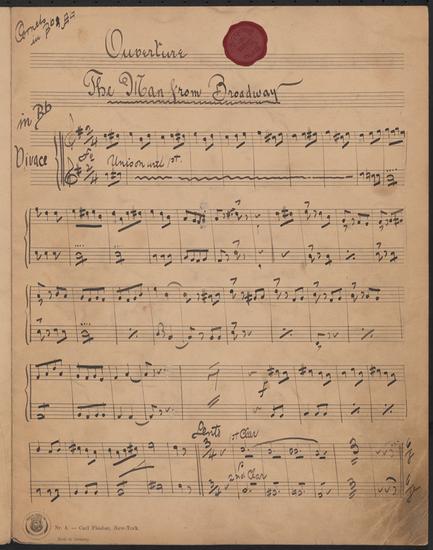 Cornets
in
Ouverture
The Man from Broadway
in Bb
Vivace
2/4
2/4
Unison with 1st.
Lento
1st Clar
3/4
2nd Clar
3/4
f
Nr. 4. — Carl Fischer, New-York.
Made in Germany